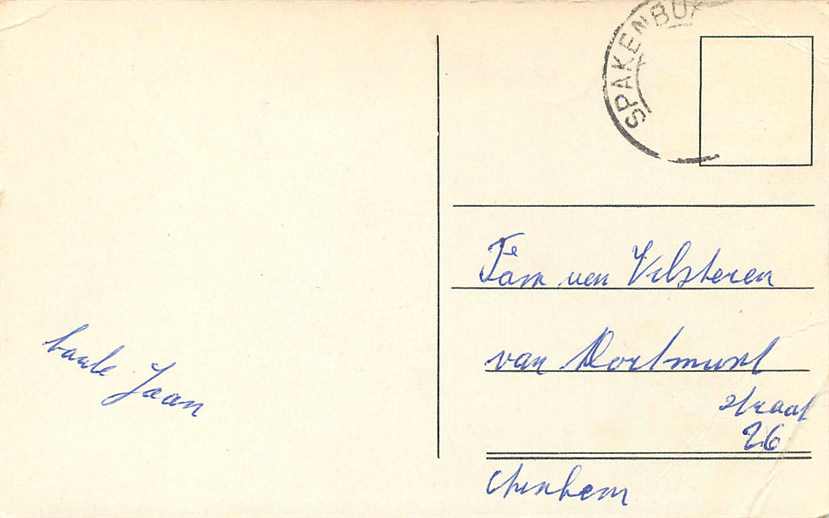 SPAKENBU
tante Jaan
Fam van Velsteren
van Dortmunt
straat
26
Arnhem